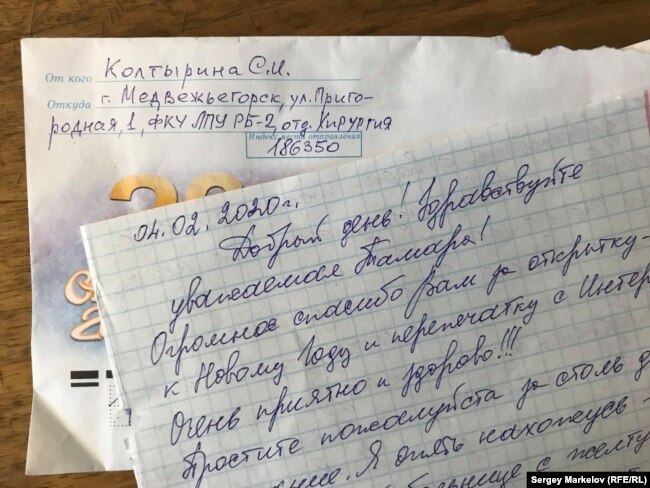 От кого Колтырина С.И.
Откуда г. Медвежьегорск, ул. Приго-
родная, 1, ФКУ ЛПУ РБ-2, отд. Хирургия
Индекс места отправления
186350
04.02.2020г.
Добрый день! Здравствуйте
уважаемая Тамара!
Огромное спасибо Вам за открытку-
к Новому Году и перепечатку с Интер
Очень приятно и здорово!!!
Простите пожалуйста за столь д
Я опять нахожусь -
с желту
Sergey Markelov (RFE/RL)